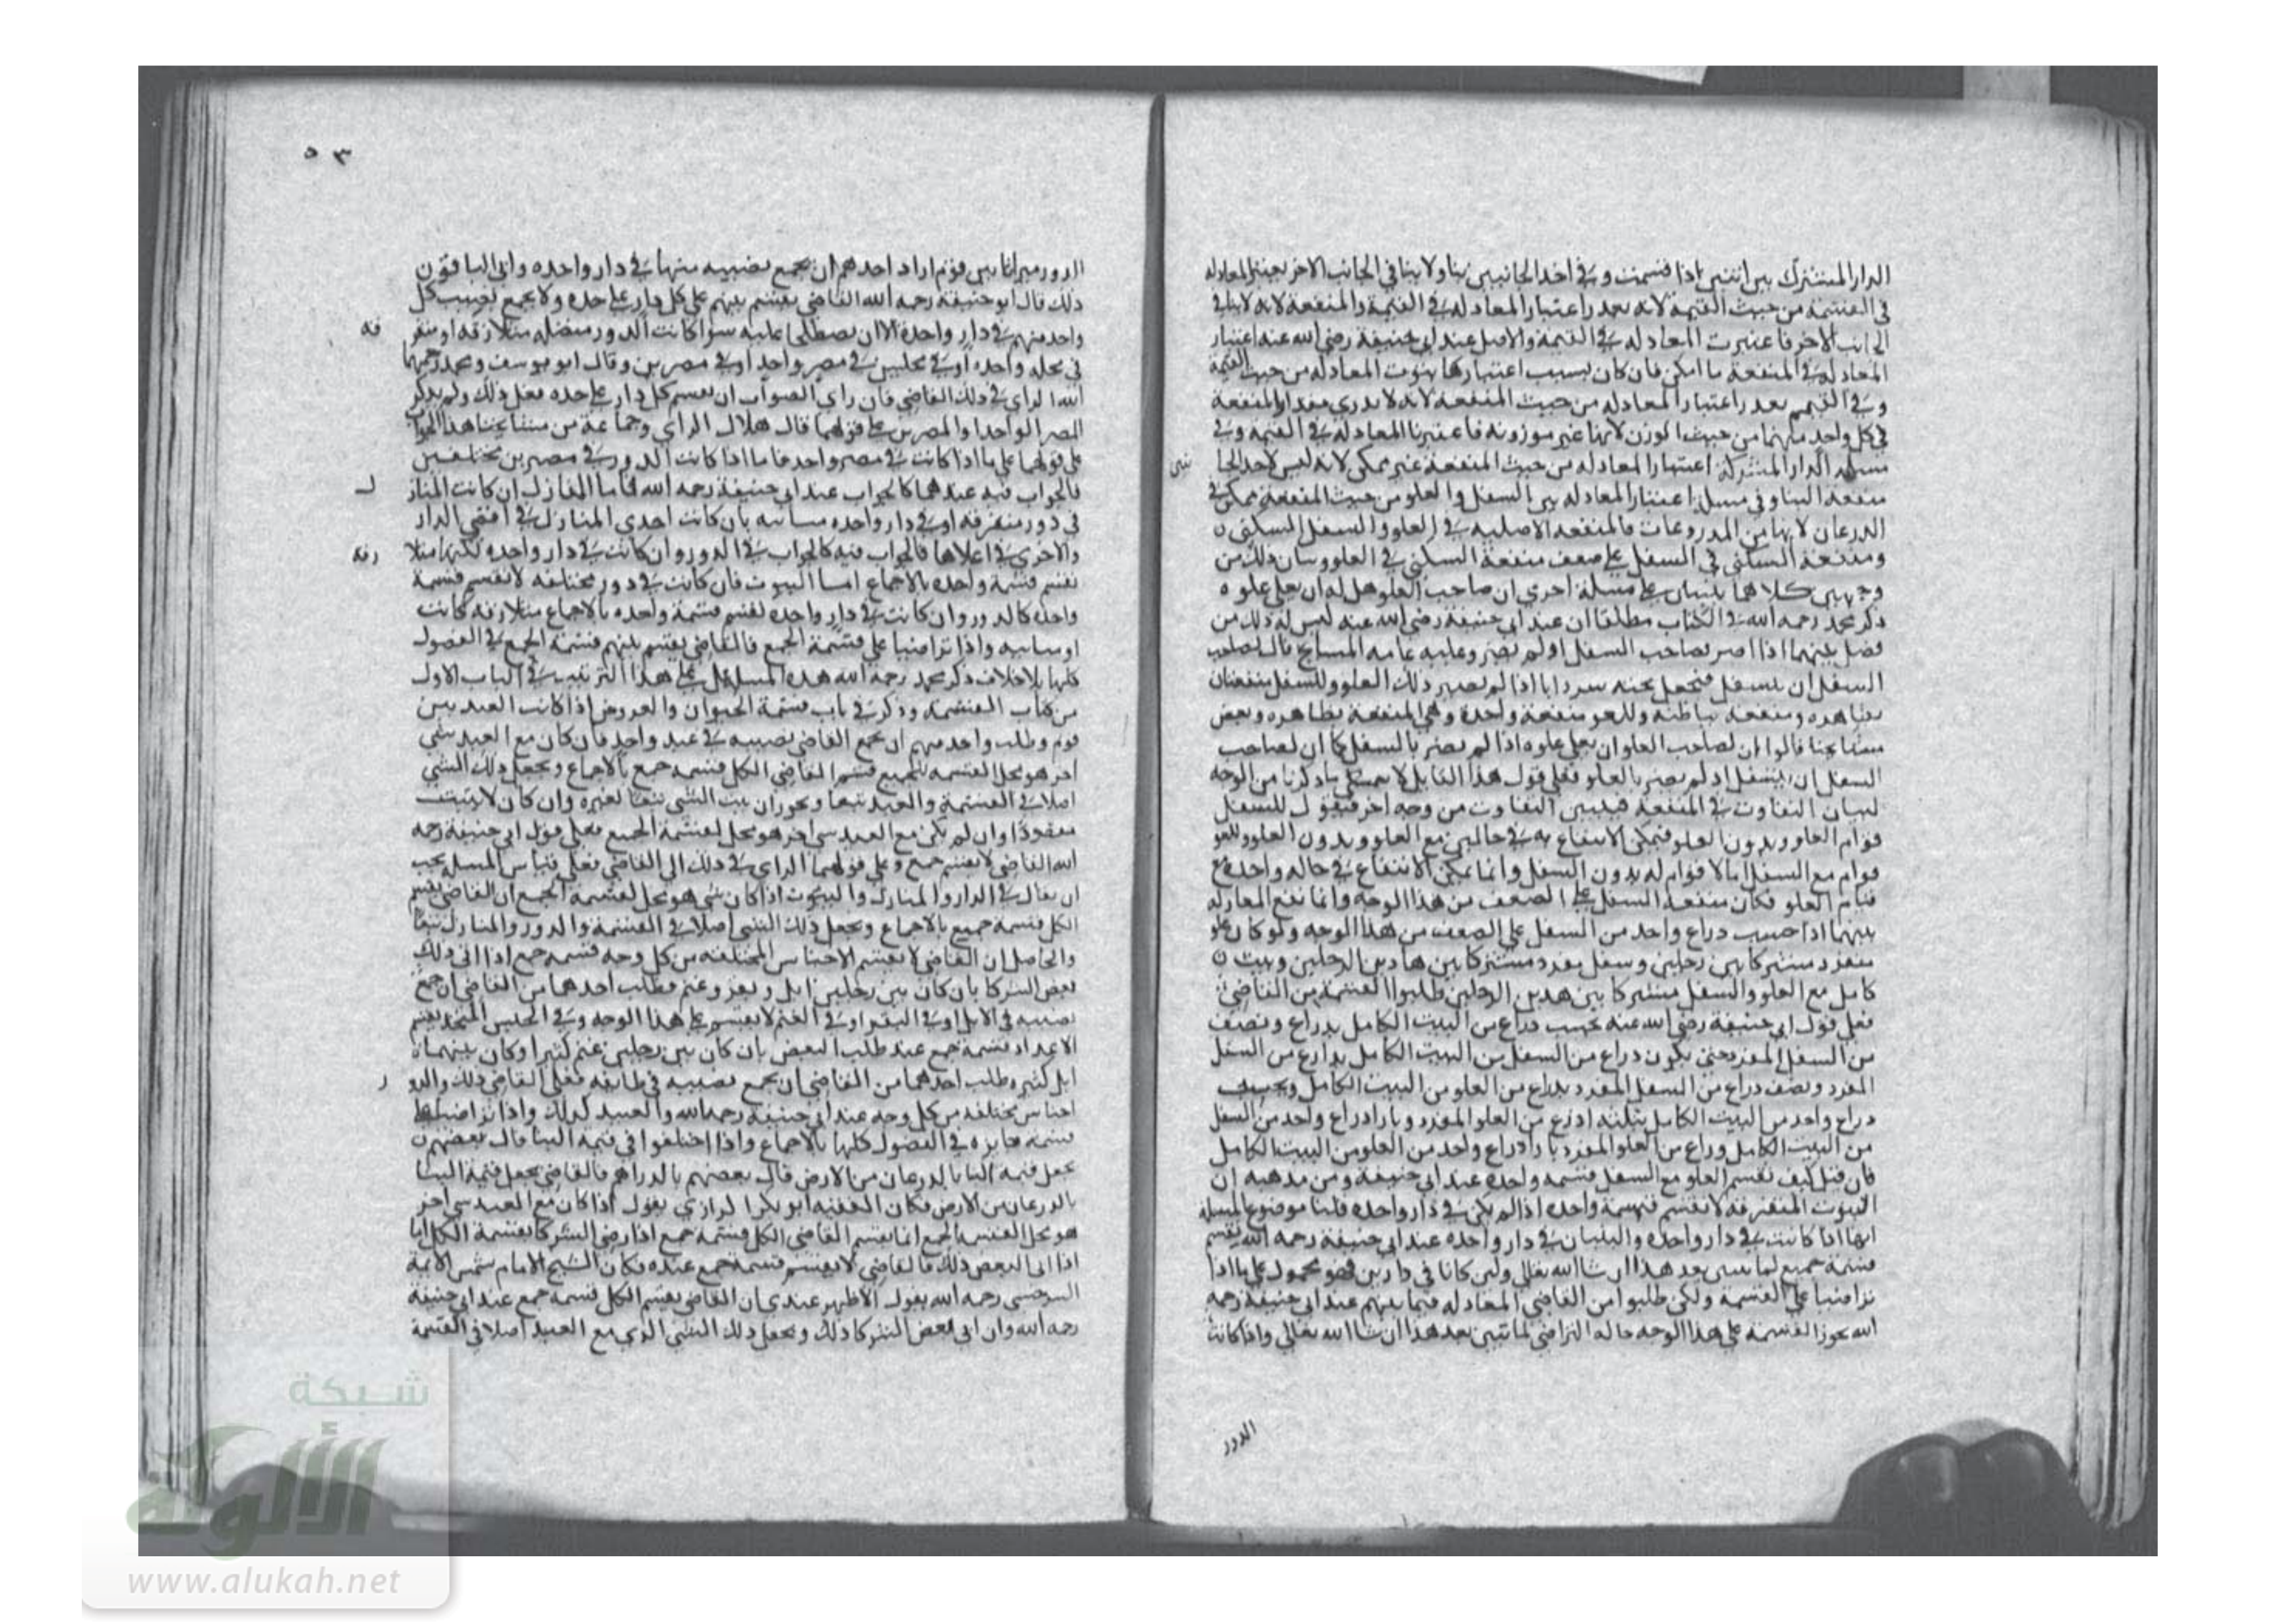 الدار المشترك بين اثنين اذا قسمت وفي احد الجانبين بنا ولا بنا في الجانب الاخر يعتبر المعادله
في القسمة من حيث القيمة لانه تعذر اعتبار المعادله في القيمة والمنفعة لانه لا بنا في
الجانب الاخر فاعتبرت المعادله في القيمة والاصل عند ابي حنيفة رضي الله عنه اعتبار
المعادله في المنفعة ما امكن فان كان بسبب اعتبارها يفوت المعادله من حيث القيمة
وفي القمم تعذر اعتبار المعادله من حيث المنفعة لانه لا يدري مقدار المنفعة
في كل واحد منهما من حيث الوزن لانها غير موزونه فاعتبرنا المعادله في القيمة وفي
مسله الدار المشتركة اعتبار المعادله من حيث المنفعة غير ممكن لانه ليس لاحد الجا
نبين
منفعة البنا وفي مسلتنا اعتبار المعادله بين السفل والعلو من حيث المنفعة ممكن في
الدرعان لانها من المدروعات فالمنفعه الاصليه في العلو والسفل السكنى
ومنفعة السكنى في السفل على ضعف منفعة السكنى في العلو وبيان ذلك من
وجهين كلاهما يبتنيان على مسلة اخرى ان صاحب العلو هل له ان يعلي علوه
ذكر محمد رحمه الله في الكتاب مطلقا ان عند ابي حنيفة رضي الله عنه ليس له ذلك من
فصل بينهما اذا اضر بصاحب السفل او لم يضر وعليه عامه المشايخ قال لصاحب
السفل ان يسفل فيجعل تحته سردابا اذا لم يضر ذلك العلو وللسفل منفعتان
بظاهره ومنفعة بباطنه وللعلو منفعة واحدة وهي المنفعة بظاهره وبعض
مشايخنا قالوا ان لصاحب العلو ان يعلي علوه اذا لم يضر بالسفل كما ان لصاحب
السفل ان يسفل اذ لم يضر بالعلو فعلى قول هذا القايل لا يتمسك بما ذكرنا من الوجه
لبيان التفاوت في المنفعة فيبين التفاوت من وجه اخر فيقول للسفل
قوام العلو وبدون العلو فيمكن الانتفاع به في حالين مع العلو وبدون العلو وللعلو
قوام مع السفل اما لا قوام له بدون السفل وانما يمكن الانتفاع في حاله واحدة مع
قيام العلو فكان منفعة السفل على الضعف من هذا الوجه وانما تقع المعادله
بينهما اذا حسب دراع واحد من السفل على الضعف من هذا الوجه ولو كان علو
منفرد مشتركا بين رجلين وسفل مفرد مشتركا بين هادين الرجلين وبيت
كامل مع العلو والسفل مشتركا بين هدين الرجلين طلبوا القسمة من القاضي
فعلى قول ابي حنيفة رضي الله عنه يحسب دراع من البيت الكامل بدراع ونصف
من السفل المفرد حتى يكون دراع من السفل من البيت الكامل بدارع من السفل
المفرد ونصف دراع من السفل المفرد بدراع من العلو من البيت الكامل ويحسب
دراع واحد من البيت الكامل بثلثة ادرع من العلو المفرد وبازا دراع واحد من السفل
من البيت الكامل ودراع من العلو المفرد بازا دراع واحد من العلو من البيت الكامل
فان قيل كيف تقسم العلو مع السفل قسمه واحدة عند ابي حنيفة ومن مدهبه ان
البيوت المتفرقه لا تقسم قسمة واحدة اذا لم يكن في دار واحده قلنا موضوع المسله
انها اذا كانت في دار واحده والبيتان في دار واحده عند ابي حنيفة رحمه الله يقسم
قسمة جميع لما نبين بعد هذا ان شا الله تعالى ولين كانا في دارين فهو محمول على ما اذا
تراضيا على القسمة ولكن طلبوا من القاضي المعادله فيما بينهم عند ابي حنيفة رحمه
الله يجوز القسمة على هذا الوجه حاله التراضي لما نبين بعد هذا ان شا الله تعالى واذا كانت
الدور
٥٣
الدور ميراثا بين قوم اراد احدهم ان يجمع نصيبه منها في دار واحده وابى الباقون
ذلك قال ابو حنيفة رحمه الله القاضي يقسم بينهم على كل دار على حده ولا يجمع نصيب كل
واحد منهم في دار واحدة الا ان يصطلحا عليه سوا كانت الدور متصله متلازقه او متفر
قه
في محله واحده او في محلتين في مصر واحد او في مصرين وقال ابو يوسف ومحمد رحمهما
الله الراي في ذلك القاضي فان راي الصواب ان يقسم كل دار على حده فعل ذلك ولم يذكر
المصر الواحد او المصرين على قولهما قال هلال الراي وجماعة من مشايخنا هذا الجواب
على قولهما على ما اذا كانت في مصر واحد فاما اذا كانت الدور في مصرين مختلفين
فالجواب فيه عندهما كالجواب عند ابي حنيفة رحمه الله فاما المنازل ان كانت المناز
ل
في دور متفرقه او في دار واحده مساينه بان كانت احدى المنازل في اقصى الدار
والاخرى في اعلاها فالجواب فيه كالجواب في الدور وان كانت في دار واحده لكنها متلا
زقه
تقسم قسمة واحده بالاجماع اما البيوت فان كانت في دور مختلفه لا تقسم قسمة
واحدة كالدور وان كانت في دار واحده تقسم قسمة واحده بالاجماع متلازقه كانت
او مساينه واذا تراضيا على قسمة الجمع فالقاضي يقسم بينهم قسمة الجمع في الفصول
كلها بلا خلاف ذكر محمد رحمه الله هده المسايل على هذا الترتيب في الباب الاول
من كتاب القسمة وذكر في باب قسمة الحيوان والعروض اذا كانت العبد بين
قوم وطلب واحد منهم ان يجمع القاضي نصيبه في عبد واحد فان كان مع العبد شي
اخر هو محل القسمه للجميع قسم القاضي الكل قسمه جمع بالاجماع ويجعل ذلك الشي
اصلا في القسمة والعبد تبعا ويجوز ان يبت الشي تبعا لغيره وان كان لا يثبت
مقصودا وان لم يكن مع العبد شي اخر هو محل لقسمة الجميع فعلى قول ابي حنيفة رحمه
الله القاضي لا يقسم جمع وعلى قولهما الراي في ذلك الى القاضي فعلى قياس المسله يجب
ان يقال في الدار والمنازل والبيوت اذا كان شي هو محل لقسمة الجمع ان القاضي يقسم
الكل قسمة جميع بالاجماع ويجعل ذلك الشي اصلا في القسمة والدور والمنازل تبعا
والحاصل ان القاضي لا يقسم الاجناس المختلفه من كل وجه قسمه جمع اذا ابى ذلك
بعض الشركا بان كان بين رجلين ابل وبقر وغنم فطلب احدهما من القاضي ان يجمع
نصيبه في الابل او في البقر او في الغنم لا يقسم على هذا الوجه وفي الجنس المتحد يقسم
الاعداد قسمة جمع عند طلب البعض بان كان بين رجلين غنم كثير او كان بينهما
ابل كثيره وطلب احدهما من القاضي ان يجمع نصيبه في طايفه فعل القاضي ذلك والدو
ر
اجناس مختلفه من كل وجه عند ابي حنيفة رحمه الله والعبيد كدلك واذا تراضيا على
قسمه جايزه في الفصول كلها بالاجماع واذا اختلفوا في قيمة البنا قال بعضهم
يجعل قيمة البنا بالدرعان من الارض قال بعضهم بالدراهم فالقاضي يجعل قيمة البنا
بالدرعان من الارض فكان الفقيه ابو بكر الرازي يقول اذا كان مع العبد شي اخر
هو محل القسمه الجمع انما يقسم القاضي الكل قسمه جمع اذا رضي الشركا بقسمة الكل اما
اذا ابى البعض ذلك فالقاضي لا يقسم قسمة جمع عنده فكان الشيخ الامام شمس الايمة
السرخسي رحمه الله يقول الاظهر عندي ان القاضي يقسم الكل قسمه جمع عند ابي حنيفة
رحمه الله وان ابى بعض الشركا ذلك ويجعل ذلك الشي الذي مع العبيد اصلا في القسمة
شبكة
الألوكة
www.alukah.net